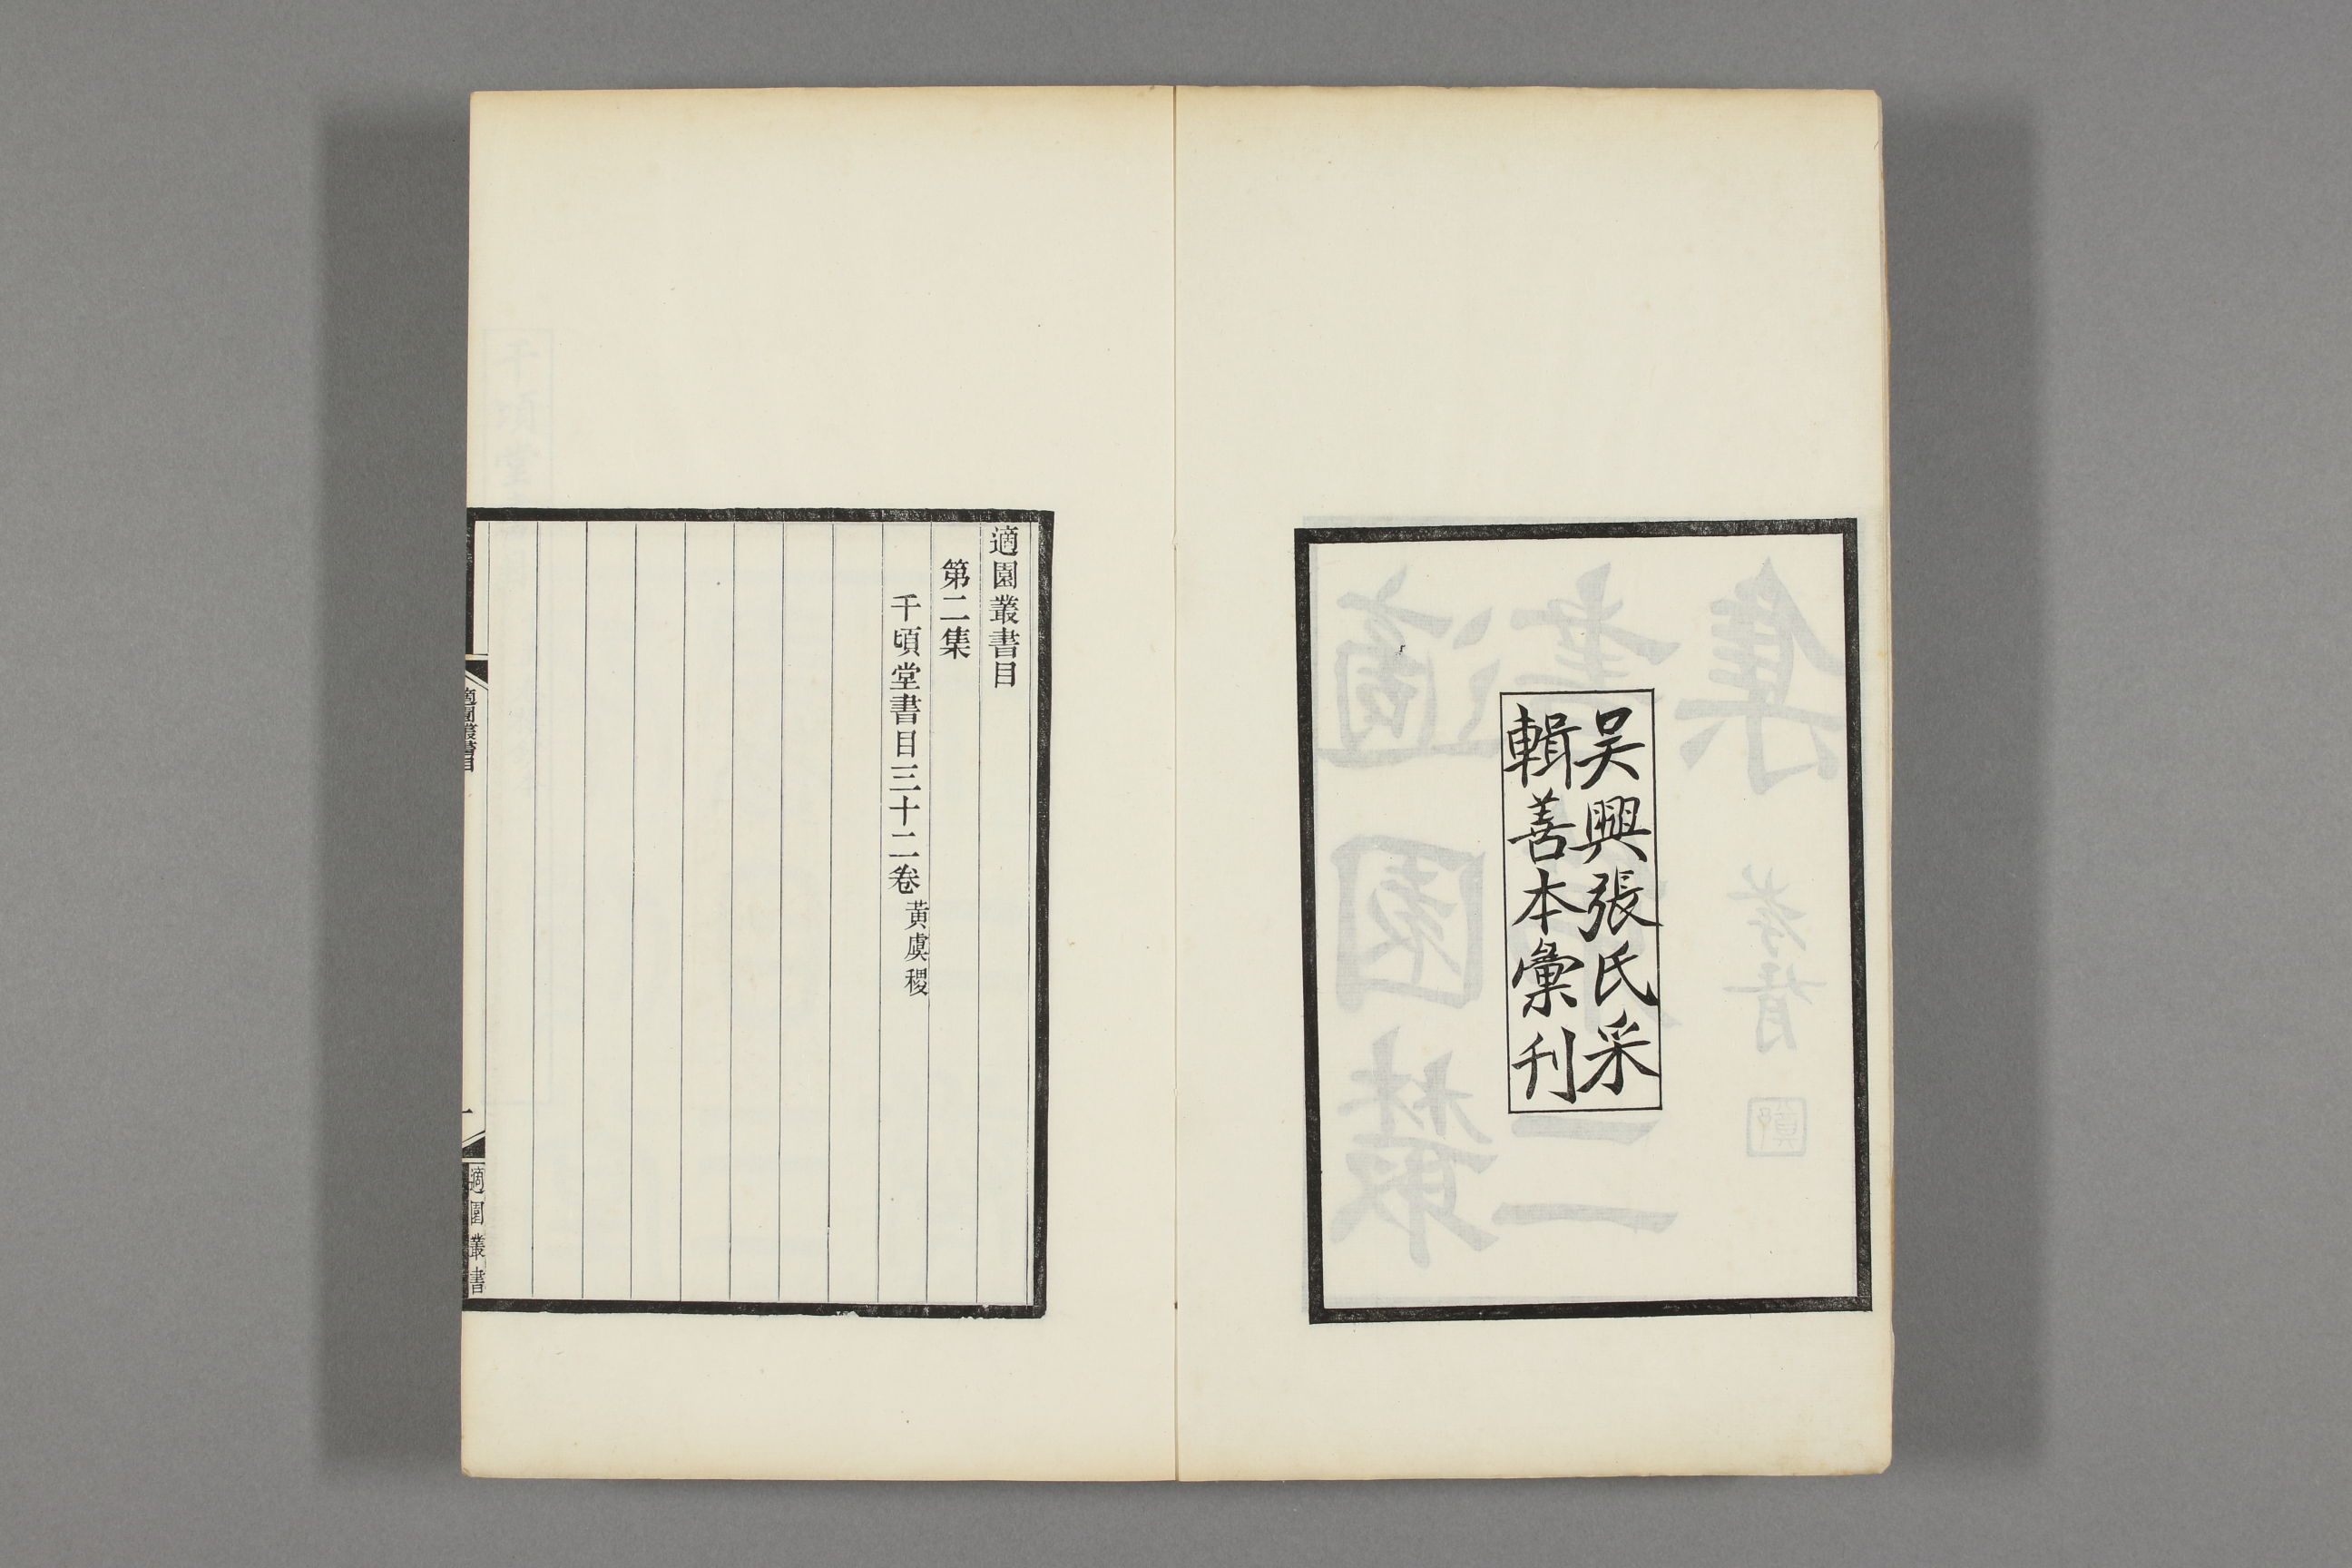 吴興張氏采
輯善本彙刊
適園叢書目
第二集
千頃堂書目三十二卷 黃虞稷
適園叢書目
一
適園叢書